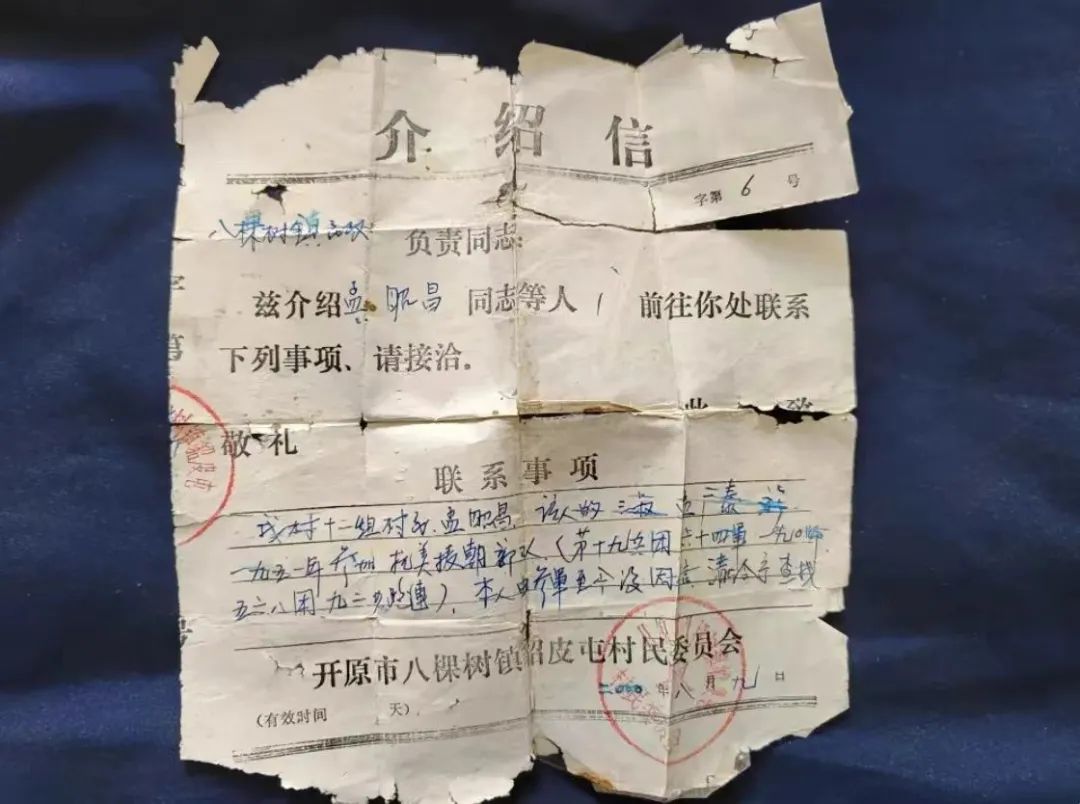 介绍信
字第 6 号
八棵树镇 负责同志:
兹介绍孟昭昌 同志等人 1 前往你处联系
下列事项、请接洽。
此 致
敬 礼
联系事项
我村十二组村民孟昭昌, 该人的
一九五一年参加抗美援朝部队(第十九兵团六十四军一九〇师
五六八团九二步炮连), 本人 参军至今没回 请给予查找
开原市八棵树镇貂皮屯村民委员会
二000年八月九日
(有效时间 天)
字
第
号